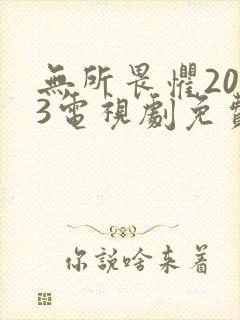 無所畏懼20
3電視劇免費
你說啥来着